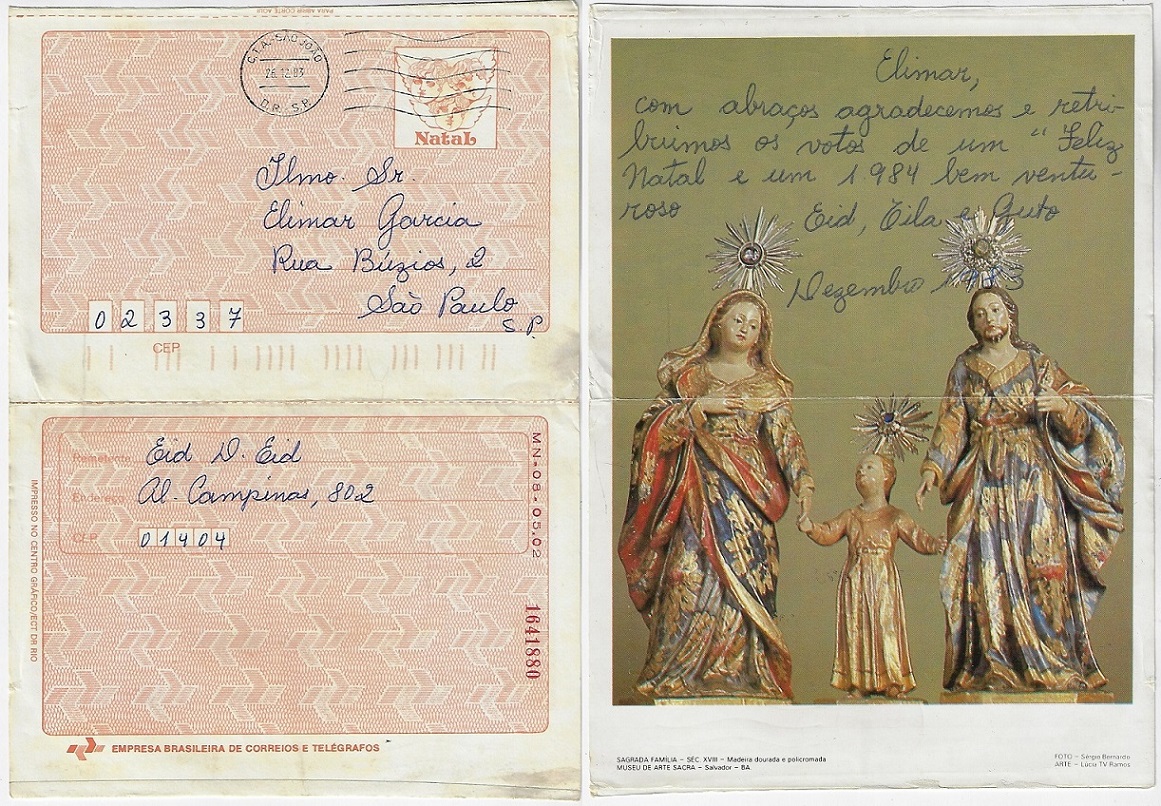 PARA ABRIR CORTE AQUI
C.T.A.-SÃO JOÃO
26.12.83
D.R. S.P.
NATAL
Ilmo. Sr.
Elimar Garcia
Rua Búzios, 2
São Paulo
S.P.
02337
CEP
Remetente Eid D. Eid
Endereço Al. Campinas, 802
CEP 01404
MN-08-05.02
1641880
IMPRESSO NO CENTRO GRÁFICO/ECT DR RIO
EMPRESA BRASILEIRA DE CORREIOS E TELÉGRAFOS
Elimar,
com abraços agradecemos e retri-
buimos os votos de um "Feliz
Natal e um 1984 bem ventu-
roso Eid, Eila e Guto
Dezembro 1983
SAGRADA FAMÍLIA - SÉC. XVIII - Madeira dourada e policromada
MUSEU DE ARTE SACRA - Salvador - BA.
FOTO - Sérgio Bernardo
ARTE - Lúcia TV Ramos